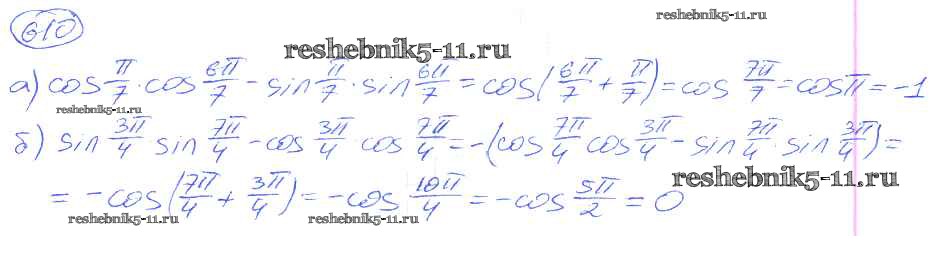 610
reshebnik5-11.ru
reshebnik5-11.ru
а) cos π/7 · cos 6π/7 - sin π/7 · sin 6π/7 = cos(6π/7 + π/7) = cos 7π/7 = cosπ = -1
reshebnik5-11.ru
б) sin 3π/4 sin 7π/4 - cos 3π/4 cos 7π/4 = -(cos 7π/4 cos 3π/4 - sin 7π/4 · sin 3π/4) =
= -cos(7π/4 + 3π/4) = -cos 10π/4 = -cos 5π/2 = 0
reshebnik5-11.ru
reshebnik5-11.ru
reshebnik5-11.ru